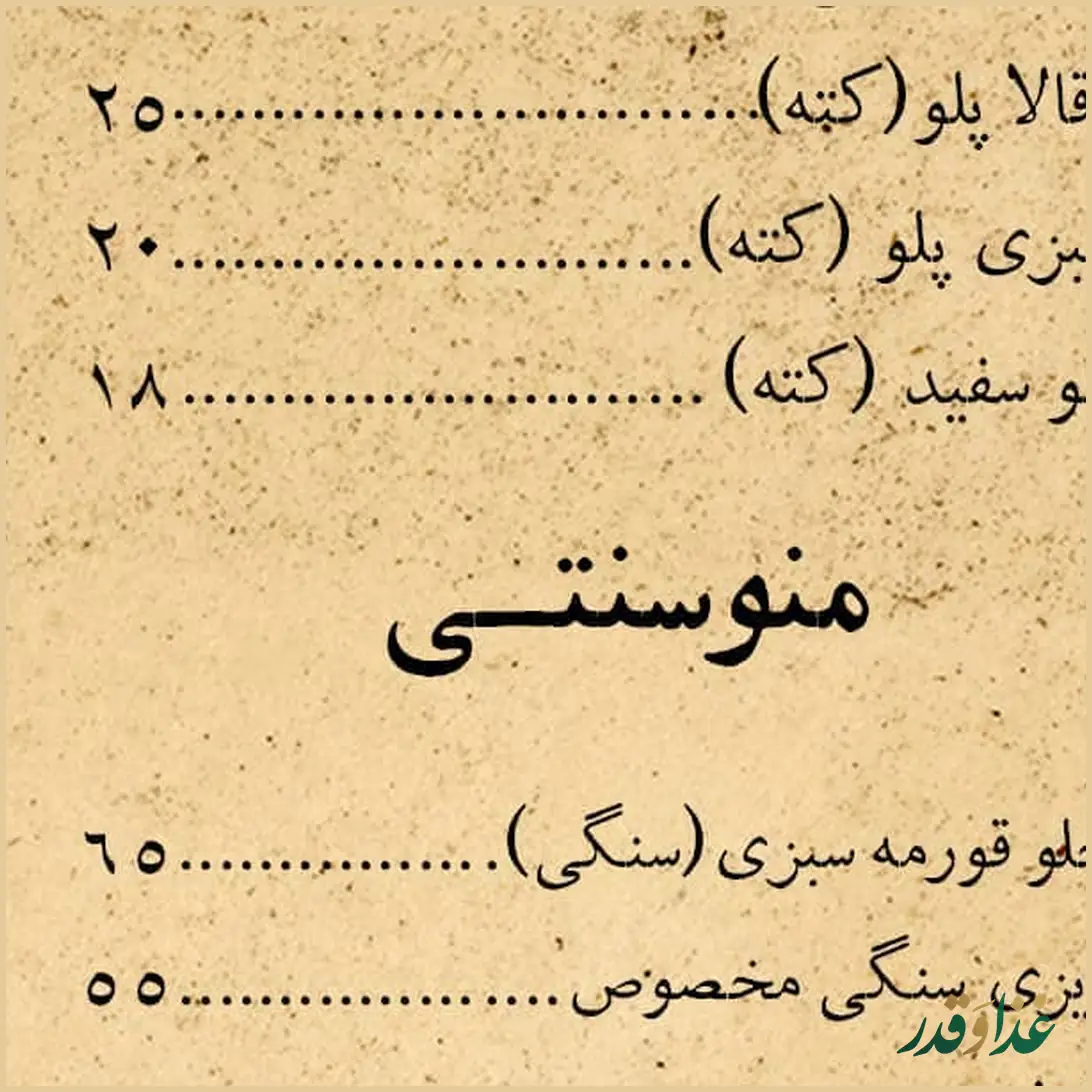 قالا پلو (کته)..............................٢٥
بزی پلو (کته)...........................٢٠
و سفید (کته) ...........................١٨
منو سنتـی
لو قورمه سبزی (سنگی)................٦٥
یزی سنگی مخصوص....................٥٥
غذا و قدر